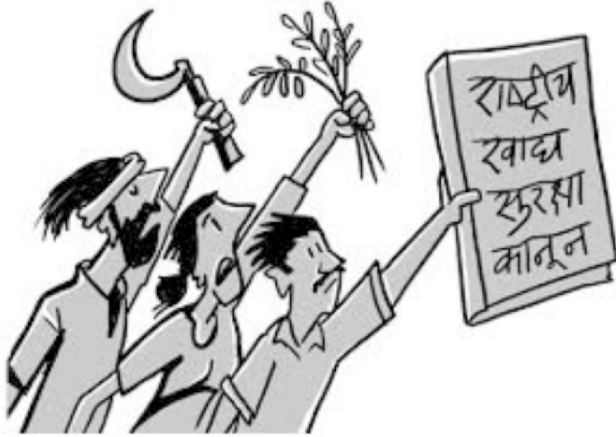 राष्ट्रीय
खाद्य
सुरक्षा
कानून